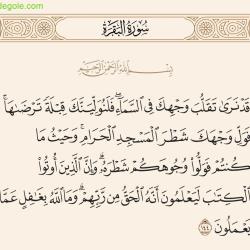 degole.com
سُورَةُ البَقَرَةِ
بِسْمِ اللَّهِ الرَّحْمَٰنِ الرَّحِيمِ
قَدْ نَرَىٰ تَقَلُّبَ وَجْهِكَ فِي السَّمَاءِ ۖ فَلَنُوَلِّيَنَّكَ قِبْلَةً تَرْضَاهَا ۚ
فَوَلِّ وَجْهَكَ شَطْرَ الْمَسْجِدِ الْحَرَامِ ۚ وَحَيْثُ مَا
كُنتُمْ فَوَلُّوا وُجُوهَكُمْ شَطْرَهُ ۗ وَإِنَّ الَّذِينَ أُوتُوا
الْكِتَابَ لَيَعْلَمُونَ أَنَّهُ الْحَقُّ مِن رَّبِّهِمْ ۗ وَمَا اللَّهُ بِغَافِلٍ عَمَّا
يَعْمَلُونَ ١٤٤